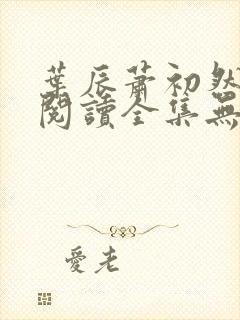 葉辰蕭初然
閱讀全集無
愛老